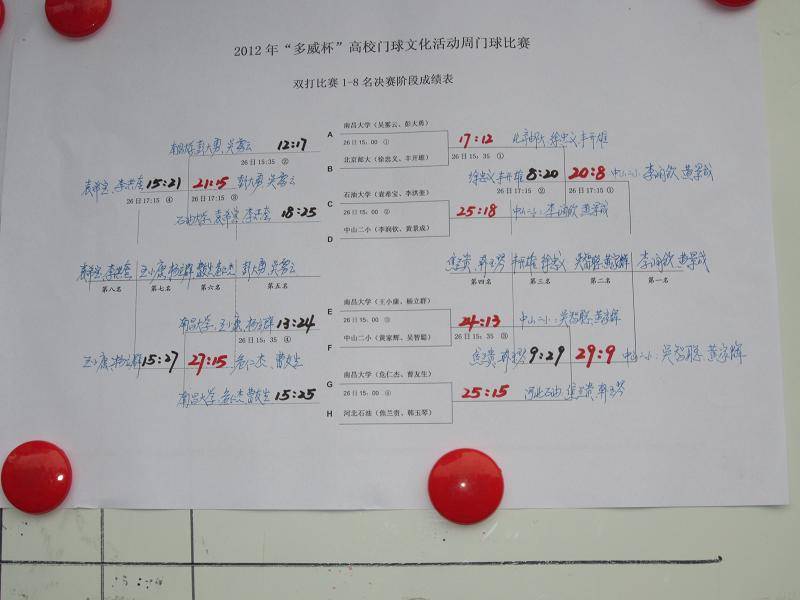 2012 年“多威杯”高校门球文化活动周门球比赛
双打比赛 1-8 名决赛阶段成绩表
A 南昌大学（吴雾云、彭大勇）
彭大勇、吴雾云 12:17 26 日 15：00 ① 17:12 北京邮大 徐忠义 丰开雄
26 日 15:35 ② B 北京邮大（徐忠义、丰开雄） 26 日 15：35 ①
袁希宝、李洪奎 15:21 21:15 彭大勇、吴雾云 徐忠义 丰开雄 8:20 20:8 中山二小：李润钦、黄景成
26 日 17:15 ④ 26 日 17:15 ③ C 石油大学（袁希宝、李洪奎） 26 日 17:15 ② 26 日 17:15 ①
石油大学、袁希宝、李洪奎 18:25 25:18 中山二小：李润钦、黄景成
D 中山二小（李润钦、黄景成）
袁希宝、李洪奎 王小康、杨立群 曹友生 危仁杰 彭大勇 吴雾云 焦兰贵、韩玉琴 丰开雄 徐忠义 吴智聪、黄家辉 李润钦、黄景成
第八名 第七名 第六名 第五名 第四名 第三名 第二名 第一名
E 南昌大学（王小康、杨立群）
南昌大学、王小康、杨立群 13:24 26 日 15：00 24:13 中山二小：吴智聪、黄家辉
26 日 15：35 ④ F 中山二小（黄家辉、吴智聪） 26 日 15：35 ③
王小康、杨立群 15:27 27:15 危仁杰、曹友生 焦兰贵 9:29 29:9 中山二小：吴智聪、黄家辉
G 南昌大学（危仁杰、曹友生）
南昌大学、危仁杰 曹友生 15:25 26 日 15：00 25:15 河北石油、焦兰贵 韩玉琴
H 河北石油（焦兰贵、韩玉琴）